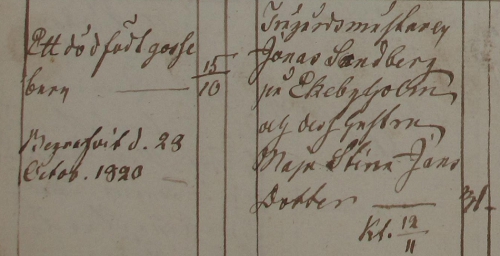 Ett dödfödt gosse
barn
15
10
Begrafvit d. 23
Octob. 1820
Trägårdsmästaren
Jonas Sandberg
på Ekebyholm
och dess hustru
Maja Stina Jans
Dotter
31
Kl. 12
11